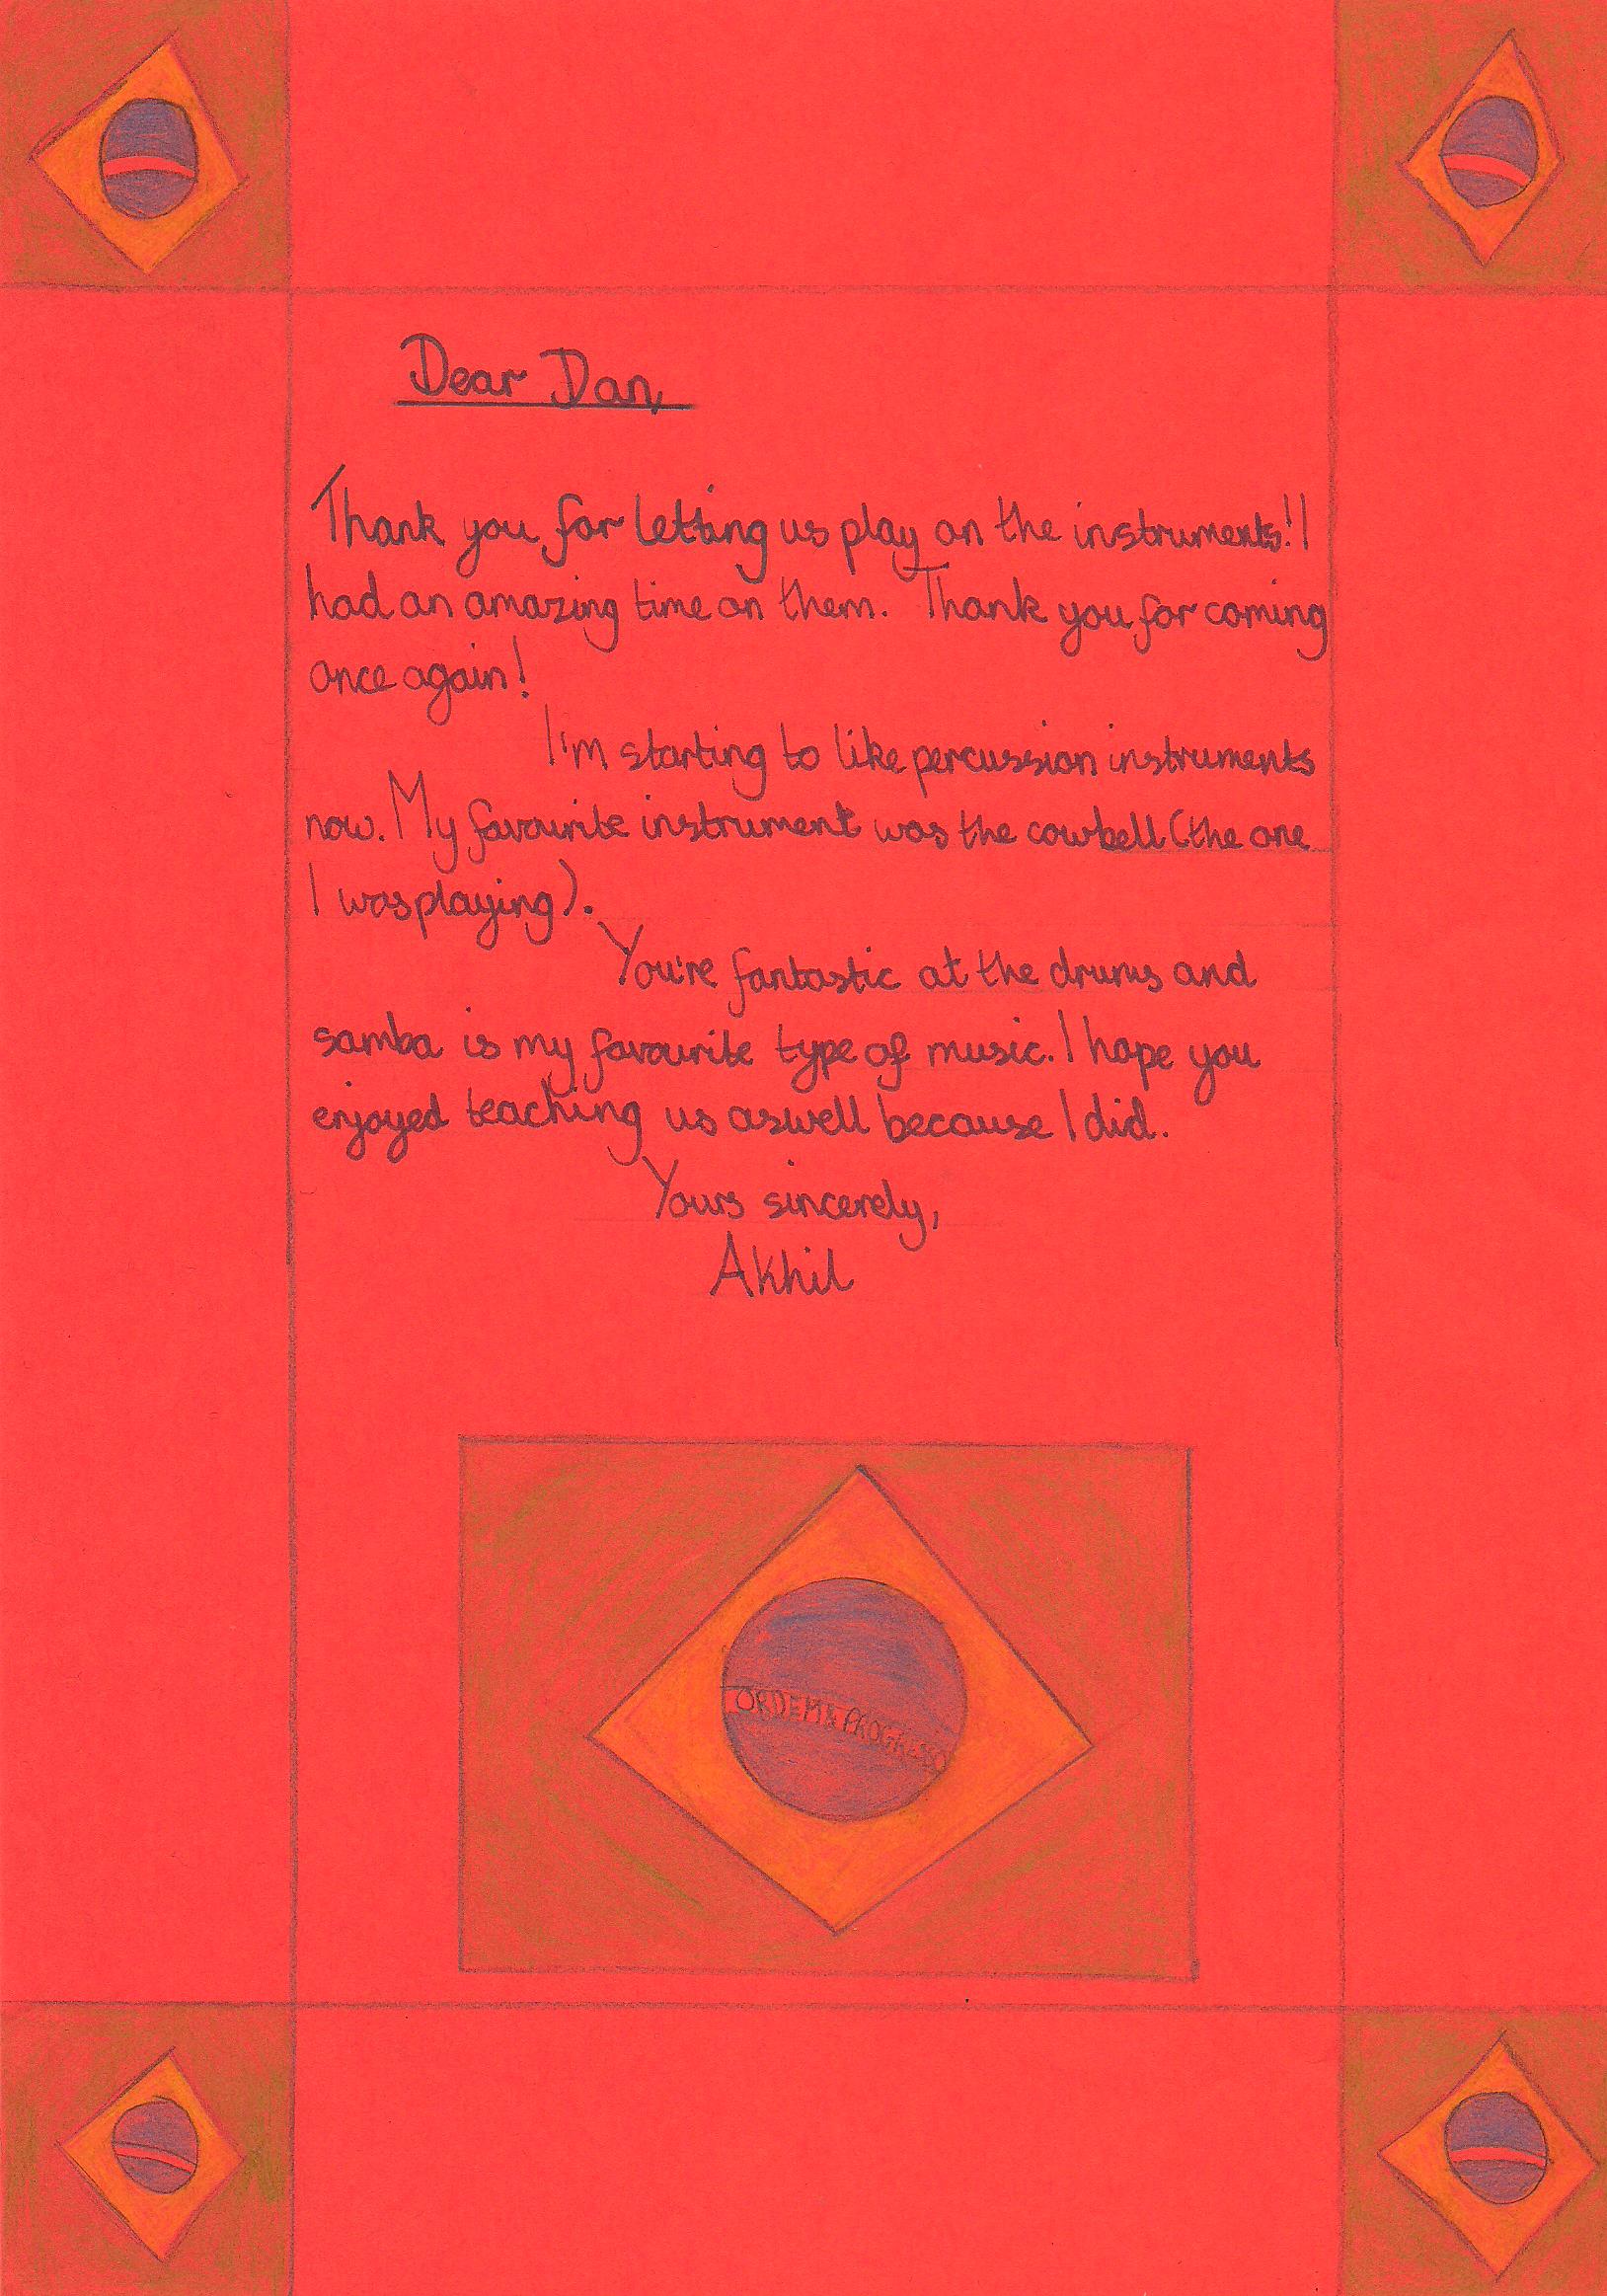 Dear Dan,
Thank you for letting us play on the instruments! I
had an amazing time on them. Thank you for coming
once again!
I'm starting to like percussion instruments
now. My favourite instrument was the cowbell (the one
I was playing).
You're fantastic at the drums and
samba is my favourite type of music. I hope you
enjoyed teaching us aswell because I did.
Yours sincerely,
Akhil
ORDEM E PROGRESSO